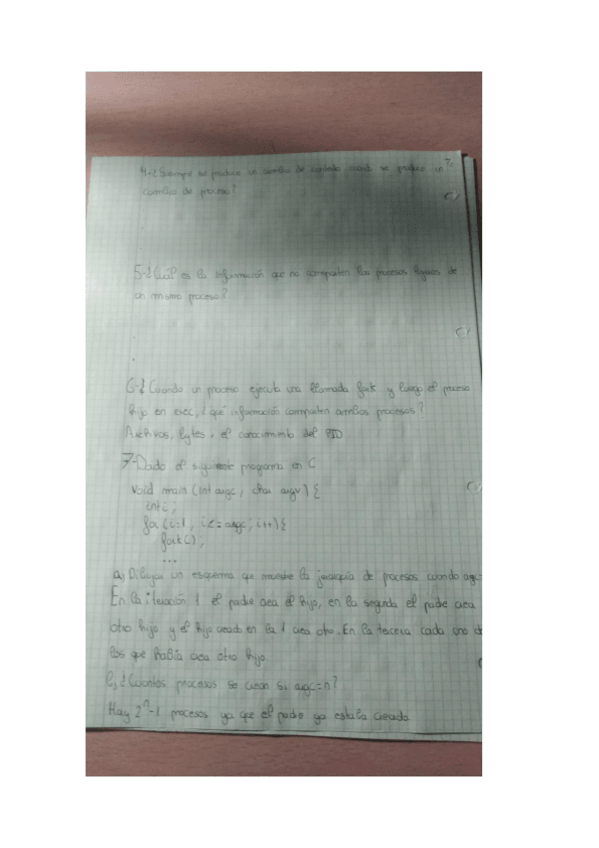 7.
4-¿Siempre se produce un cambio de contexto cuando se produce un
cambio de proceso?
5-¿Cuál es la información que no comparten los procesos ligeros de
un mismo proceso?
6-¿Cuando un proceso ejecuta una llamada fork y luego el proceso
hijo en exec, ¿qué información comparten ambos procesos?
Archivos, bytes, el conocimiento del PID
7-Dado el siguiente programa en C
void main (int argc, char argv) {
int i;
for (i=1, i<=argc, i++){
fork();
...
a) Dibujar un esquema que muestre la jerarquía de procesos cuando argc
En la iteración 1 el padre crea el hijo, en la segunda el padre crea
otro hijo y el hijo creado en la 1 crea otro. En la tercera cada uno d
los que había crea otro hijo.
b) ¿Cuántos procesos se crean si argc=n?
Hay 2^n-1 procesos ya que el padre ya estaba creado